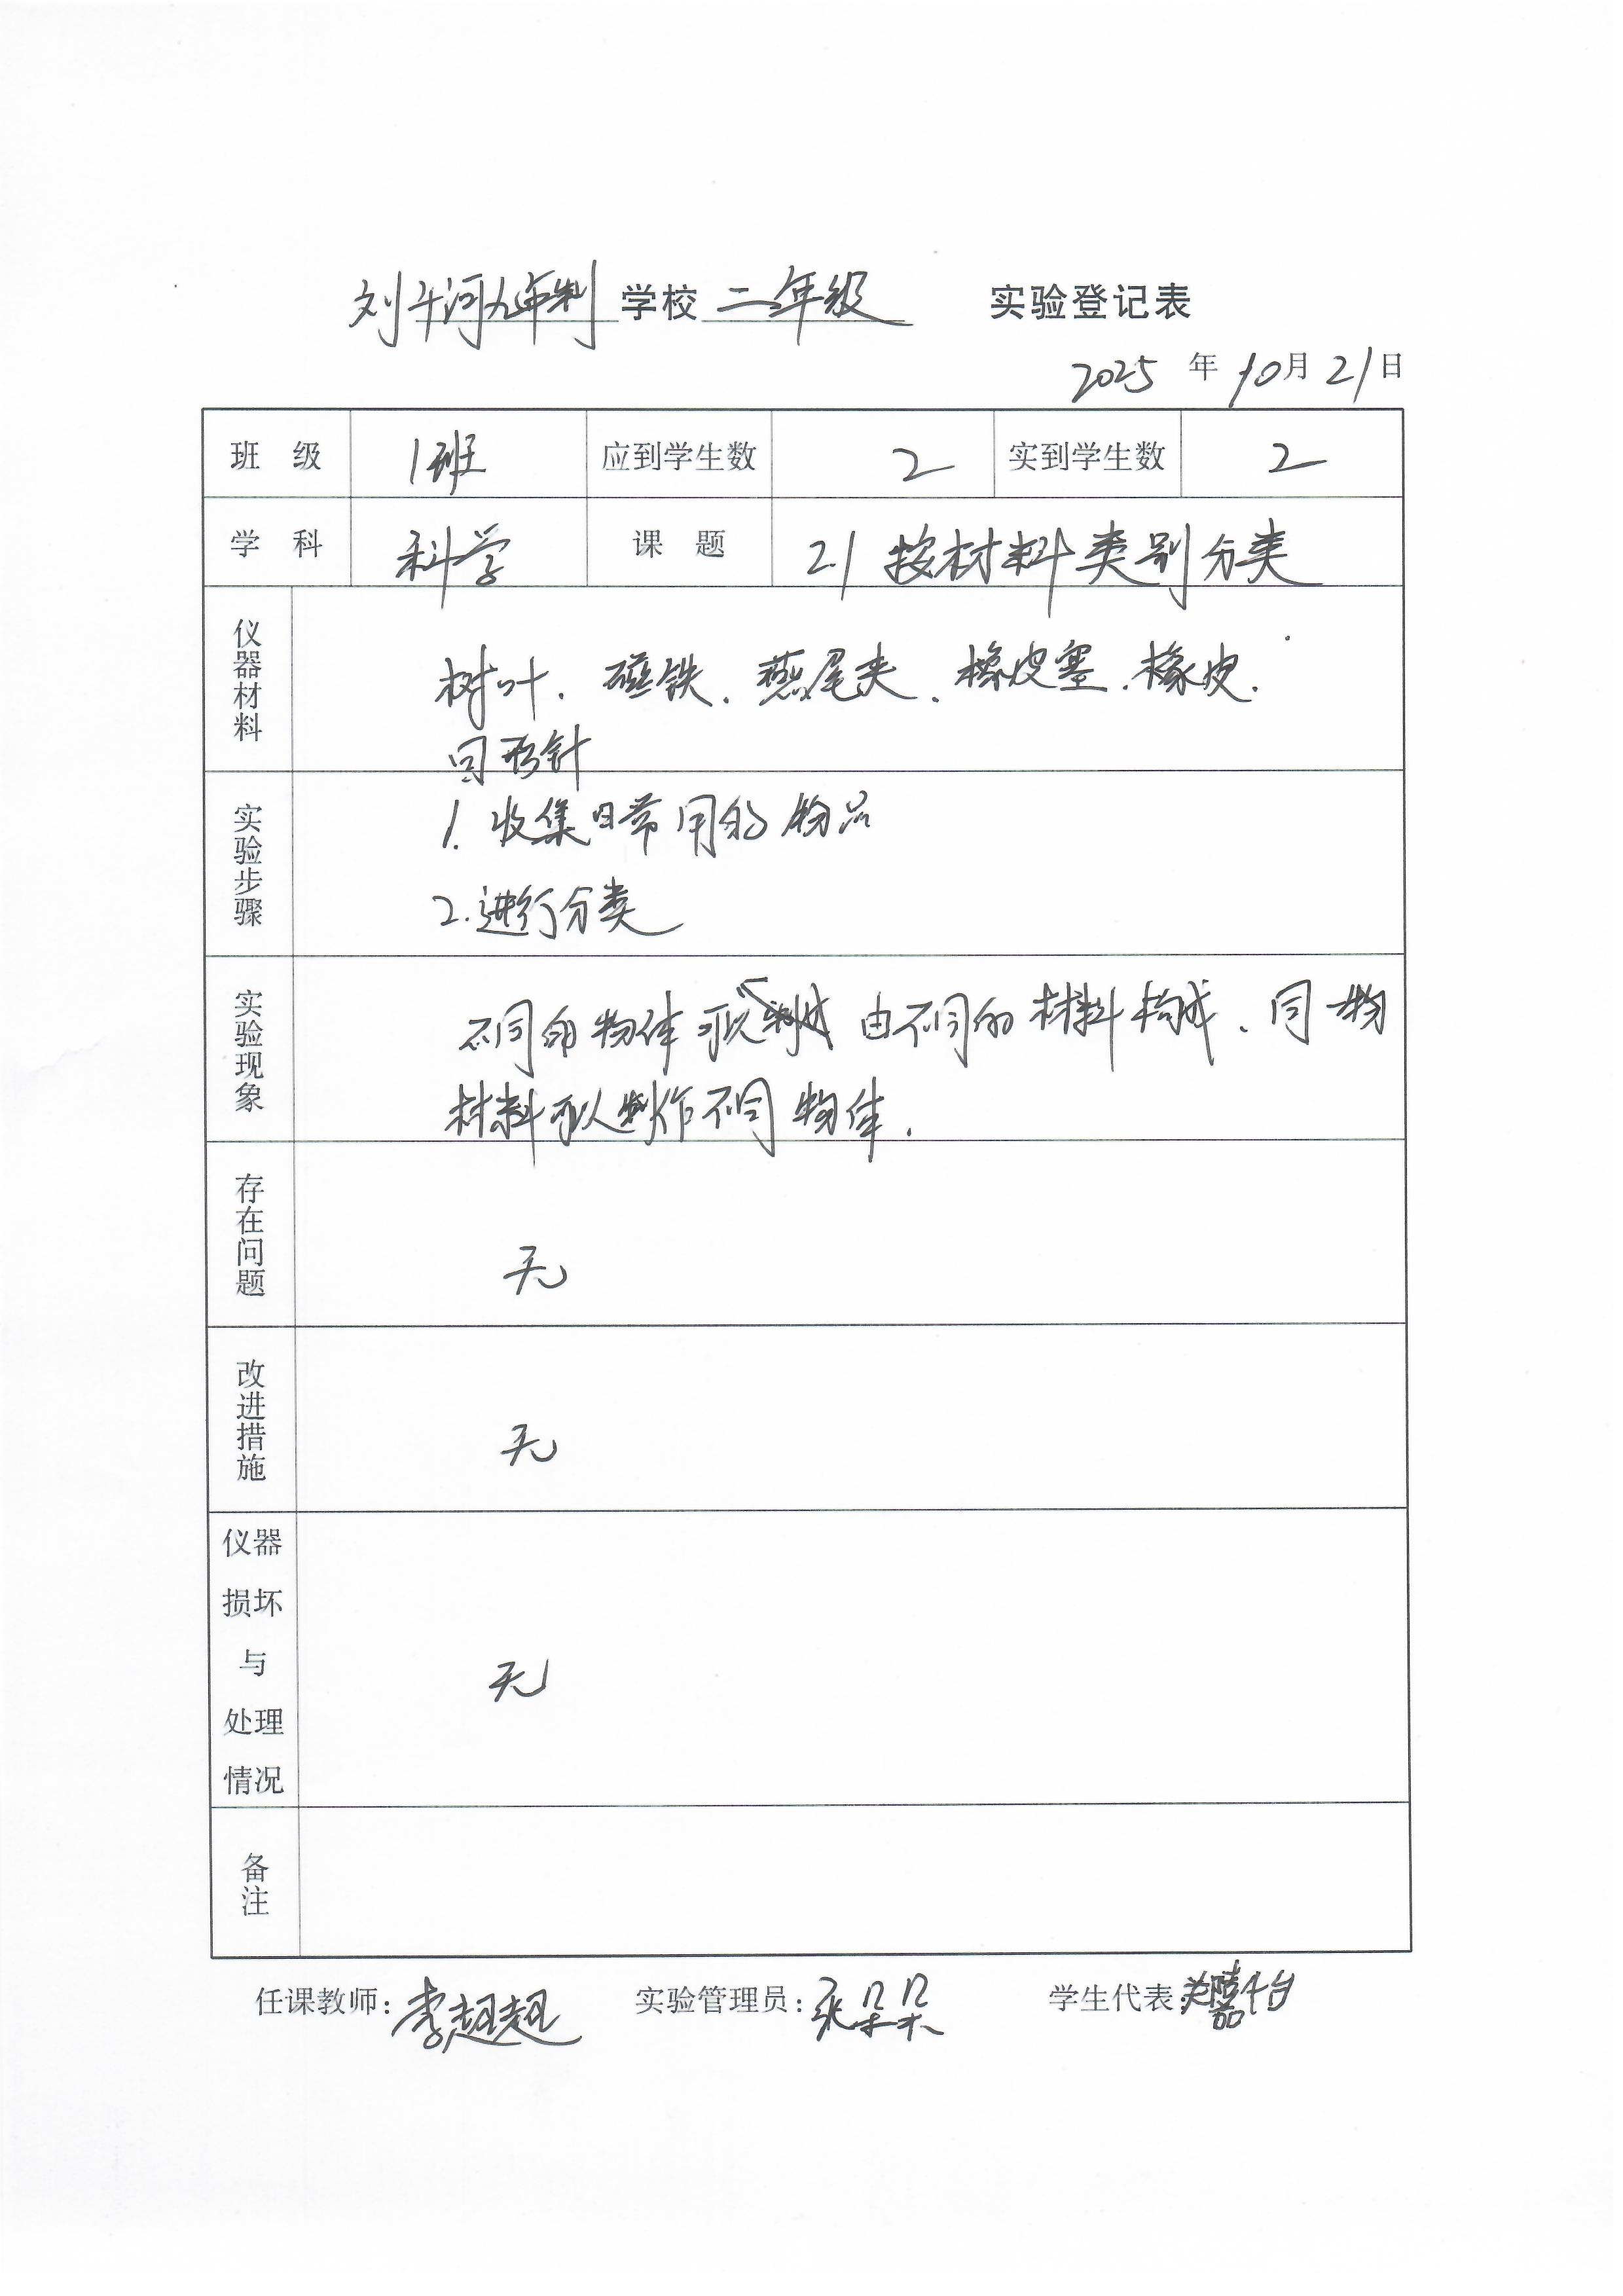 刘千河九年制学校 二年级 实验登记表
2025 年 10 月 21 日
班 级 1班 应到学生数 2 实到学生数 2
学 科 科学 课 题 21 按材料类别分类
仪器材料 树叶、磁铁、燕尾夹、橡皮塞、橡皮、
回形针
实验步骤 1. 收集日常用的物品
2. 进行分类
实验现象 不同的物体可以由不同的材料构成、同一物
材料可以制作不同物体.
存在问题 无
改进措施 无
仪器损坏与处理情况 无
备注
任课教师: 李超超 实验管理员: 张朵朵 学生代表: